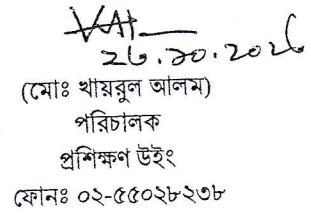 26.10.2026
(মোঃ খায়রুল আলম)
পরিচালক
প্রশিক্ষণ উইং
ফোনঃ ০২-৫৫০২৮২৩৮